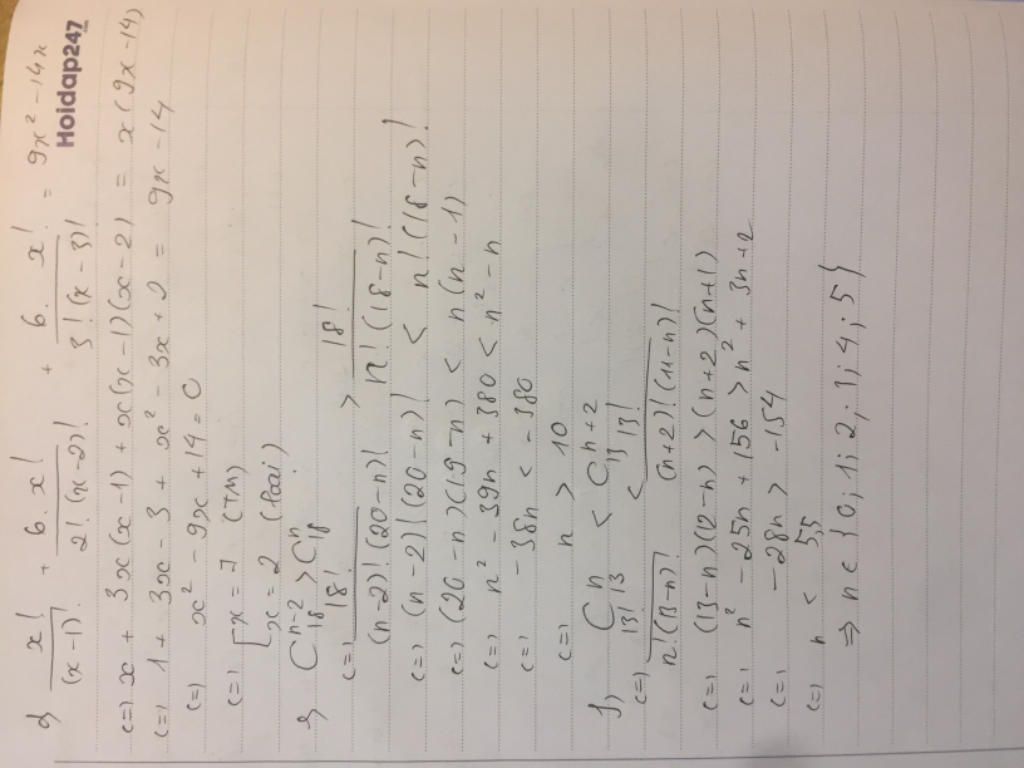 d) x!/(x-1)! + 6.x!/2!.(x-2)! + 6.x!/3!(x-3)! = 9x² - 14x
Hoidap247
(=) x + 3x(x-1) + x(x-1)(x-2) = x(9x-14)
(=) 1 + 3x - 3 + x² - 3x + 2 = 9x - 14
(=) x² - 9x + 14 = 0
(=) [x = 7 (TM)
[x = 2 (loại)
C₁₈ⁿ⁻² > C₁₈ⁿ
(=) 18!/(n-2)!(20-n)! > 18!/n!(18-n)!
(=) (n-2)!(20-n)! < n!(18-n)!
(=) (20-n)(19-n) < n(n-1)
(=) n² - 39n + 380 < n² - n
(=) -38n < -380
(=) n > 10
f) C₁₃ⁿ < C₁₃ⁿ⁺²
(=) 13!/n!(13-n)! < 13!/(n+2)!(11-n)!
(=) (13-n)(12-n) > (n+2)(n+1)
(=) n² - 25n + 156 > n² + 3n + 2
(=) -28n > -154
(=) n < 5,5
⇒ n ∈ {0;1;2;3;4;5}